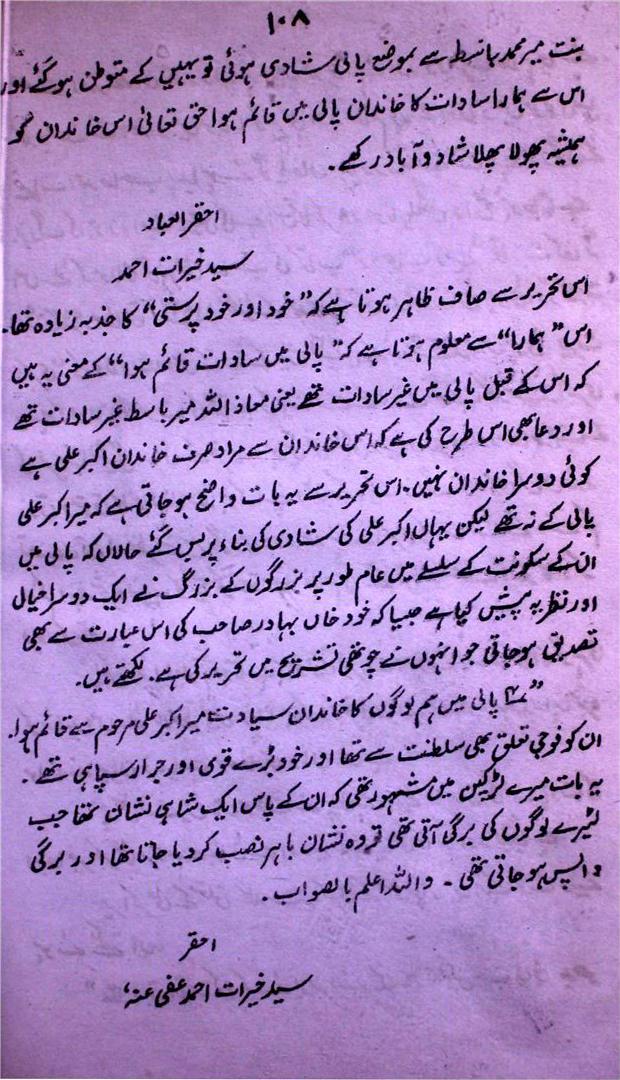 ۱۰۸
بنت میر محمد باسط سے بموضع پالی شادی ہوئی تو یہیں کے متوطن ہوگئے اور
اس سے ہمارا سادات کا خاندان پالی میں قائم ہوا حق تعالیٰ اس خاندان کو
ہمیشہ پھولا پھلا شاد و آباد رکھے۔
احقر العباد
سید خیرات احمد
اس تحریر سے صاف ظاہر ہوتا ہے کہ ”خود اور خود پرستی“ کا جذبہ زیادہ تھا۔
اس ”ہمارا“ سے معلوم ہوتا ہے کہ ”پالی میں سادات قائم ہوا“ کے معنی یہ ہیں
کہ اس کے قبل پالی میں غیر سادات تھے یعنی معاذ اللہ میر باسط غیر سادات تھے
اور دعا بھی اس طرح کی ہے کہ اس خاندان سے مراد صرف خاندان اکبر علی ہے
کوئی دوسرا خاندان نہیں۔ اس تحریر سے یہ بات واضح ہوجاتی ہے کہ میر اکبر علی
پالی کے نہ تھے لیکن یہاں اکبر علی کی شادی کی بناء پر بس گئے حالاں کہ پالی میں
ان کے سکونت کے سلسلے میں عام طور پر بزرگوں کے بزرگ نے ایک دوسرا خیال
اور نظریہ پیش کیا ہے جیسا کہ خود خاں بہادر صاحب کی اس عبارت سے بھی
تصدیق ہوجاتی جو انہوں نے چوتھی تشریح میں تحریر کی ہے۔ لکھتے ہیں۔
”۴ پالی میں ہم لوگوں کا خاندان سیادت میر اکبر علی مرحوم سے قائم ہوا۔
ان کو فوجی تعلق بھی سلطنت سے تھا اور خود بڑے قوی اور جرار سپاہی تھے۔
یہ بات میرے لڑکپن میں مشہور تھی کہ ان کے پاس ایک شاہی نشان تھا جب
لٹیرے لوگوں کی برگی آتی تھی تو وہ نشان باہر نصب کر دیا جاتا تھا اور برگی
واپس ہوجاتی تھی۔ واللہ اعلم بالصواب۔
احقر
سید خیرات احمد عفی عنہ‘